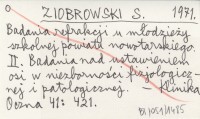 ZIOBROWSKI S. 1971.
Badania refrakcji u młodzieży
szkolnej powiatu nowotarskiego.
II. Badania nad ustawieniem
osi w niezborności fizjologicz-
nej i patologicznej. – Klinika
Oczna 41: 421.
BI/1051/1485